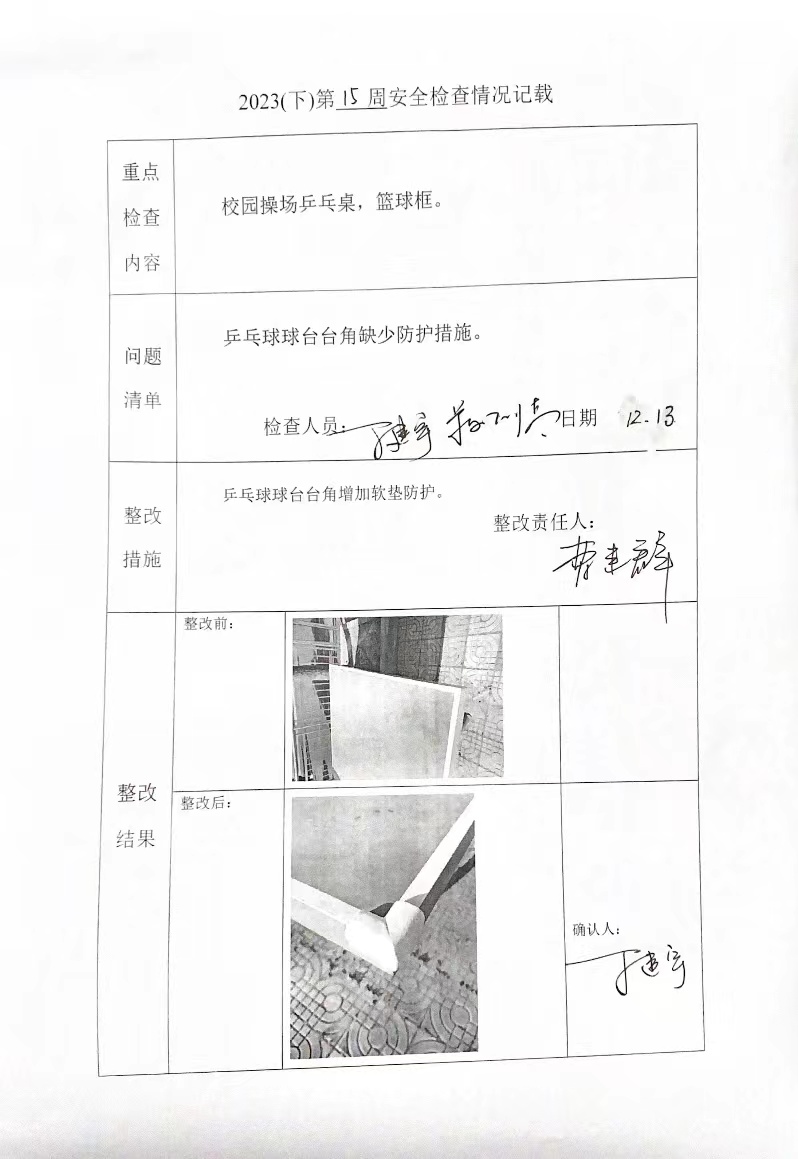 2023(下)第15周安全检查情况记载
重点
检查
内容
校园操场乒乓桌，篮球框。
问题
清单
乒乓球球台台角缺少防护措施。
检查人员：
日期 12.13
整改
措施
乒乓球球台台角增加软垫防护。
整改责任人：
整改
结果
整改前：
整改后：
确认人：